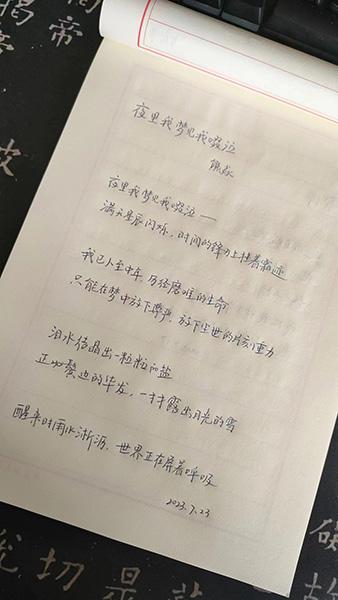 揭帝
夜里我梦见我啜泣
熊焱
夜里我梦见我啜泣——
满天星辰闪烁，时间的锋刃上挂着霜迹
我已人至中年，历经磨难的生命
只能在梦中放下尊严，放下尘世的片刻重力
泪水结晶出一粒粒的盐
正如鬓边的华发，一寸寸露出月光的雪
醒来时雨水淅沥，世界正在屏着呼吸
2023.7.23
切是